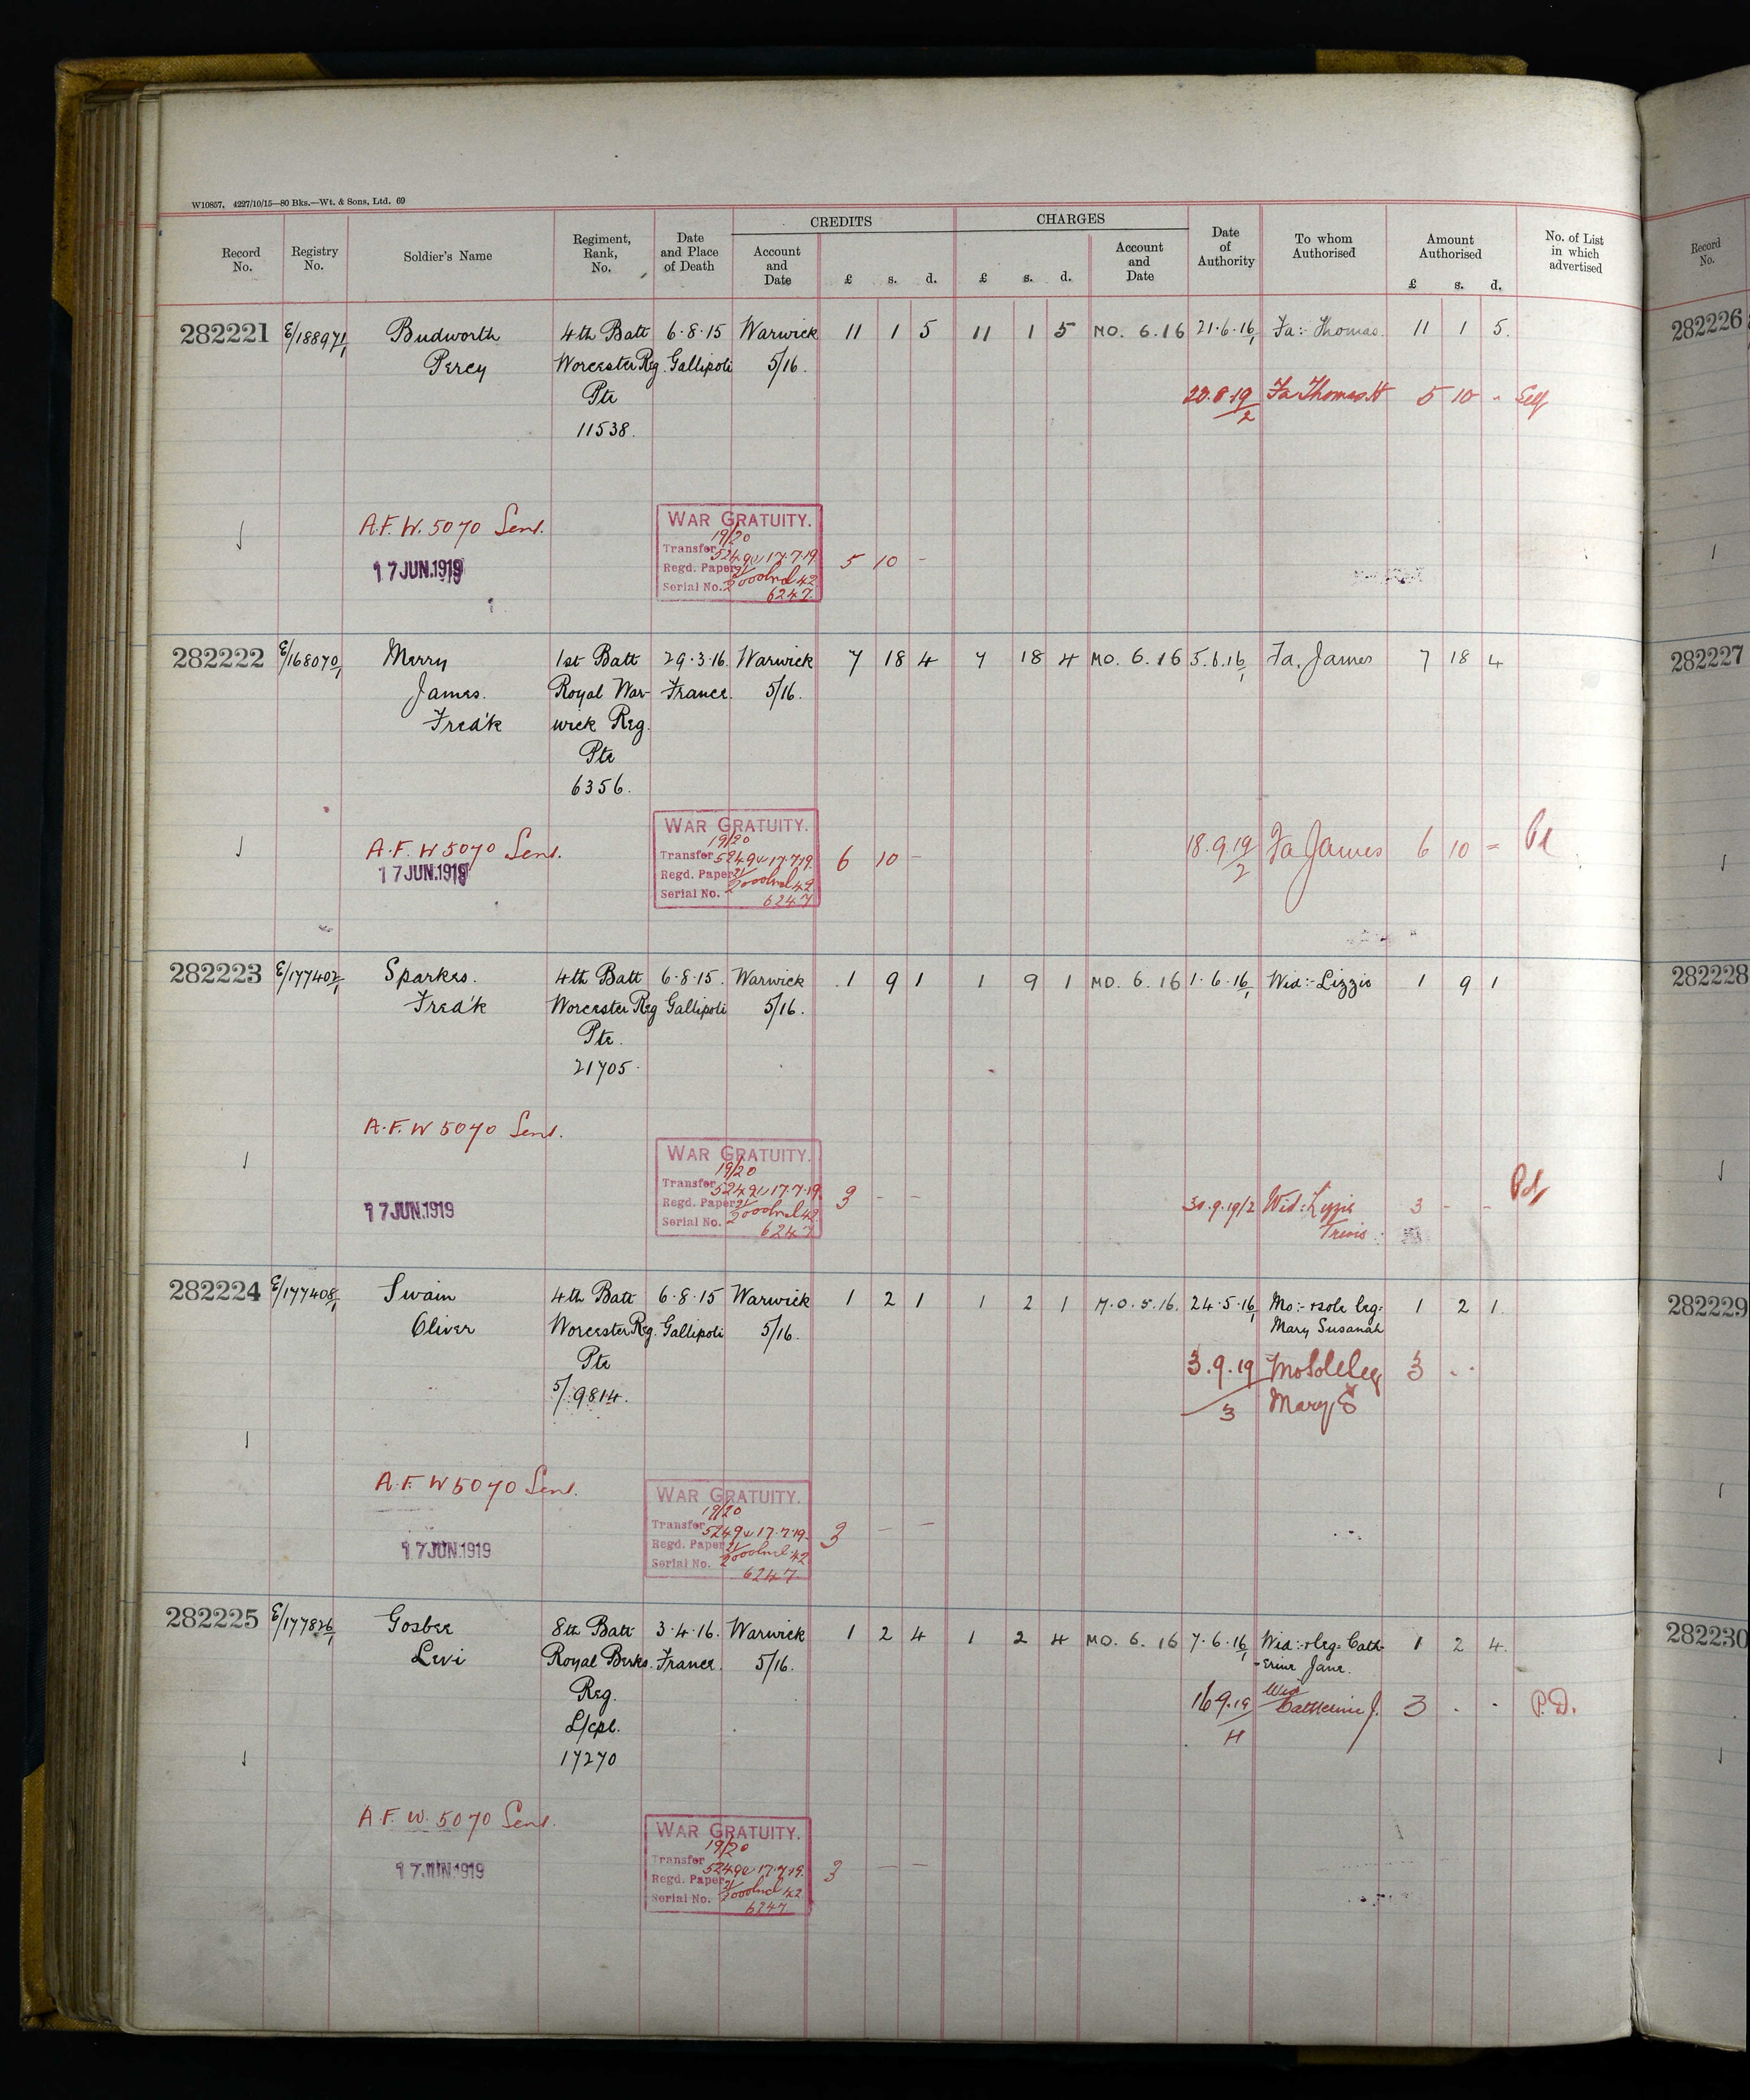 W10857, 4227/10/15—80 Bks.—Wt. & Sons, Ltd. 69
CREDITS CHARGES
Record No. Registry No. Soldier's Name Regiment, Rank, No. Date and Place of Death Account and Date £ s. d. £ s. d. Account and Date Date of Authority To whom Authorised Amount Authorised £ s. d. No. of List in which advertised
Record No.
282221 E/188971/1 Budworth 4th Batt 6·8·15 Warwick 11 1 5 11 1 5 MO. 6.16 21·6·16/1 Fa:- Thomas 11 1 5.
282226
Percy Worcester Reg. Gallipoli 5/16.
Pte 20.8.19/2 Fa Thomas H 5 10 -
11538.
A.F.W. 5070 Sent.
17 JUN. 1919
WAR GRATUITY.
19/20
Transfer 5249 17.7.19
Regd. Paper
Serial No. 6247
5 10 -
282222 E/168070/1 Merry 1st Batt 29.3.16. Warwick 7 18 4 7 18 4 MO. 6.16 5.6.16/1 Fa. James 7 18 4
282227
James. Royal War- France. 5/16.
Fred'k wick Reg.
Pte
6356.
A.F.W 5070 Sent.
17 JUN. 1919
WAR GRATUITY.
19/20
Transfer 5249 17.7.19
Regd. Paper
Serial No. 6247
6 10 -
18.9.19/2 Fa James 6 10 -
282223 E/177402/1 Sparkes. 4th Batt 6·8·15. Warwick 1 9 1 1 9 1 MO. 6.16 1·6·16/1 Wid:- Lizzie 1 9 1
282228
Fred'k Worcester Reg Gallipoli 5/16.
Pte.
21705.
A.F.W 5070 Sent.
17 JUN. 1919
WAR GRATUITY.
19/20
Transfer 5249 17.7.19
Regd. Paper
Serial No. 6247
3 - -
30.9.19/2 Wid: Lizzie 3 - - Pd
282224 E/177408/1 Swain 4th Batt 6·8·15 Warwick 1 2 1 1 2 1 M.O.5.16. 24.5.16/1 Mo:- & sole leg: 1 2 1.
282229
Oliver Worcester Reg. Gallipoli 5/16. Mary Susanah
Pte 3.9.19/3 Mo Sole Leg 3 - -
5/9814. Mary S
A.F.W 5070 Sent.
17 JUN. 1919
WAR GRATUITY.
19/20
Transfer 5249 17.7.19
Regd. Paper
Serial No. 6247
3 - -
282225 E/177826/1 Gosbee 8th Batt 3·4·16. Warwick 1 2 4 1 2 4 MO. 6.16 7·6·16/1 Wid:- & leg: Cath- 1 2 4.
282230
Levi Royal Berks. France. 5/16. -erine Jane.
Reg. 16.9.19/4 Wid Catherine J. 3 - - P.D.
L/cpl.
17270
A.F.W. 5070 Sent.
17 JUN. 1919
WAR GRATUITY.
19/20
Transfer 5249 17.7.19
Regd. Paper
Serial No. 6247
3 - -